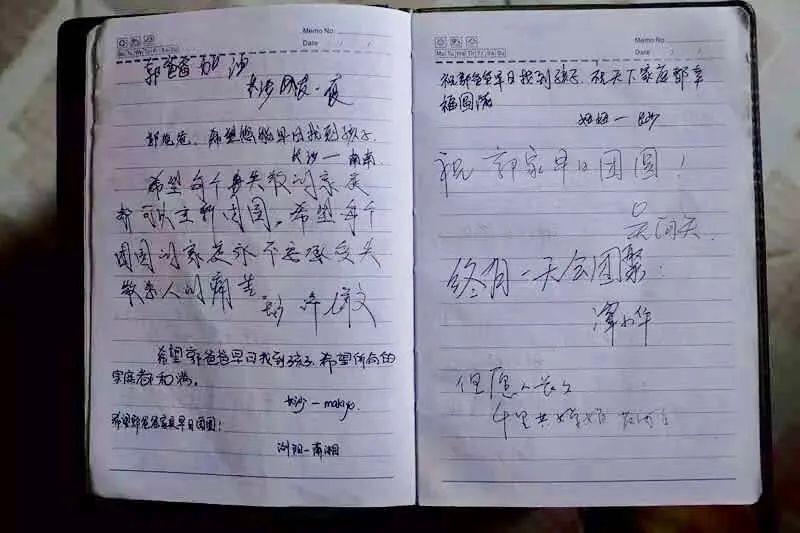 Memo No.
Mo Tu We Th Fr Sa Su
Date / /
郭爸爸加油
长沙网友一夜
郭爸爸,希望您能早日找到孩子
长沙一南南
希望每个丢失散的家庭
都可以重新团圆,希望每个
团圆的家庭永不要承受失
散亲人的痛苦。
长沙
希望郭爸爸早日找到孩子,希望所有的
家庭都和满。
长沙一makiyo.
希望郭爸爸家庭早日团圆!
浏阳一南湘
Memo No.
Mo Tu We Th Fr Sa Su
Date / /
祝郭爸爸早日找到孩子,愿天下家庭都幸
福圆满
妞妞一长沙
祝郭家早日团圆!
终有一天会团聚.
但愿人长久
千里共婵娟